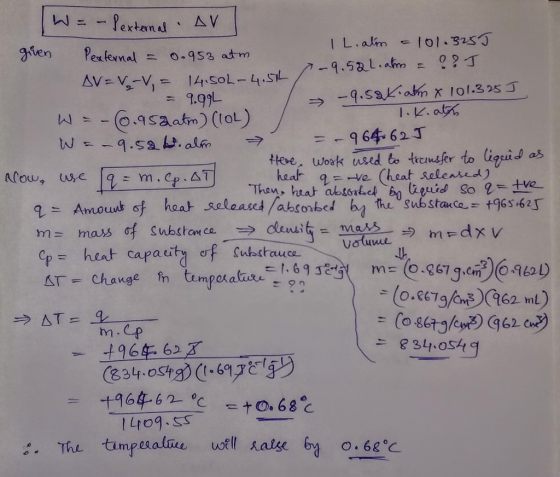 W = - Pexternal . ΔV
given Pexternal = 0.953 atm
ΔV = V2-V1 = 14.50L - 4.51L
= 9.99L
W = -(0.953atm)(10L)
W = -9.52 L.atm ⇒
1 L.atm = 101.325J
-9.52L.atm = ?? J
⇒ -9.52L.atm × 101.325J
1.L.atm
= -964.62J
Here, work used to transfer to liquid as
heat q = -ve (heat released)
Then, heat absorbed by liquid so q = +ve
Now, use q = m.Cp.ΔT
q = Amount of heat released/absorbed by the substance = +965.62J
m = mass of substance ⇒ density = mass/volume ⇒ m = d×V
Cp = heat capacity of substance
= 1.69 J°C⁻¹g⁻¹
ΔT = Change in temperature = ??
⇓
m = (0.867g.cm⁻³)(0.962L)
= (0.867g/cm³)(962 mL)
= (0.867g/cm³)(962 cm³)
= 834.054g
⇒ ΔT = q
m.Cp
= +964.62 J
(834.054g)(1.69J°C⁻¹g⁻¹)
= +964.62 °C
1409.55
= +0.68°C
∴ The temperature will raise by 0.68°C